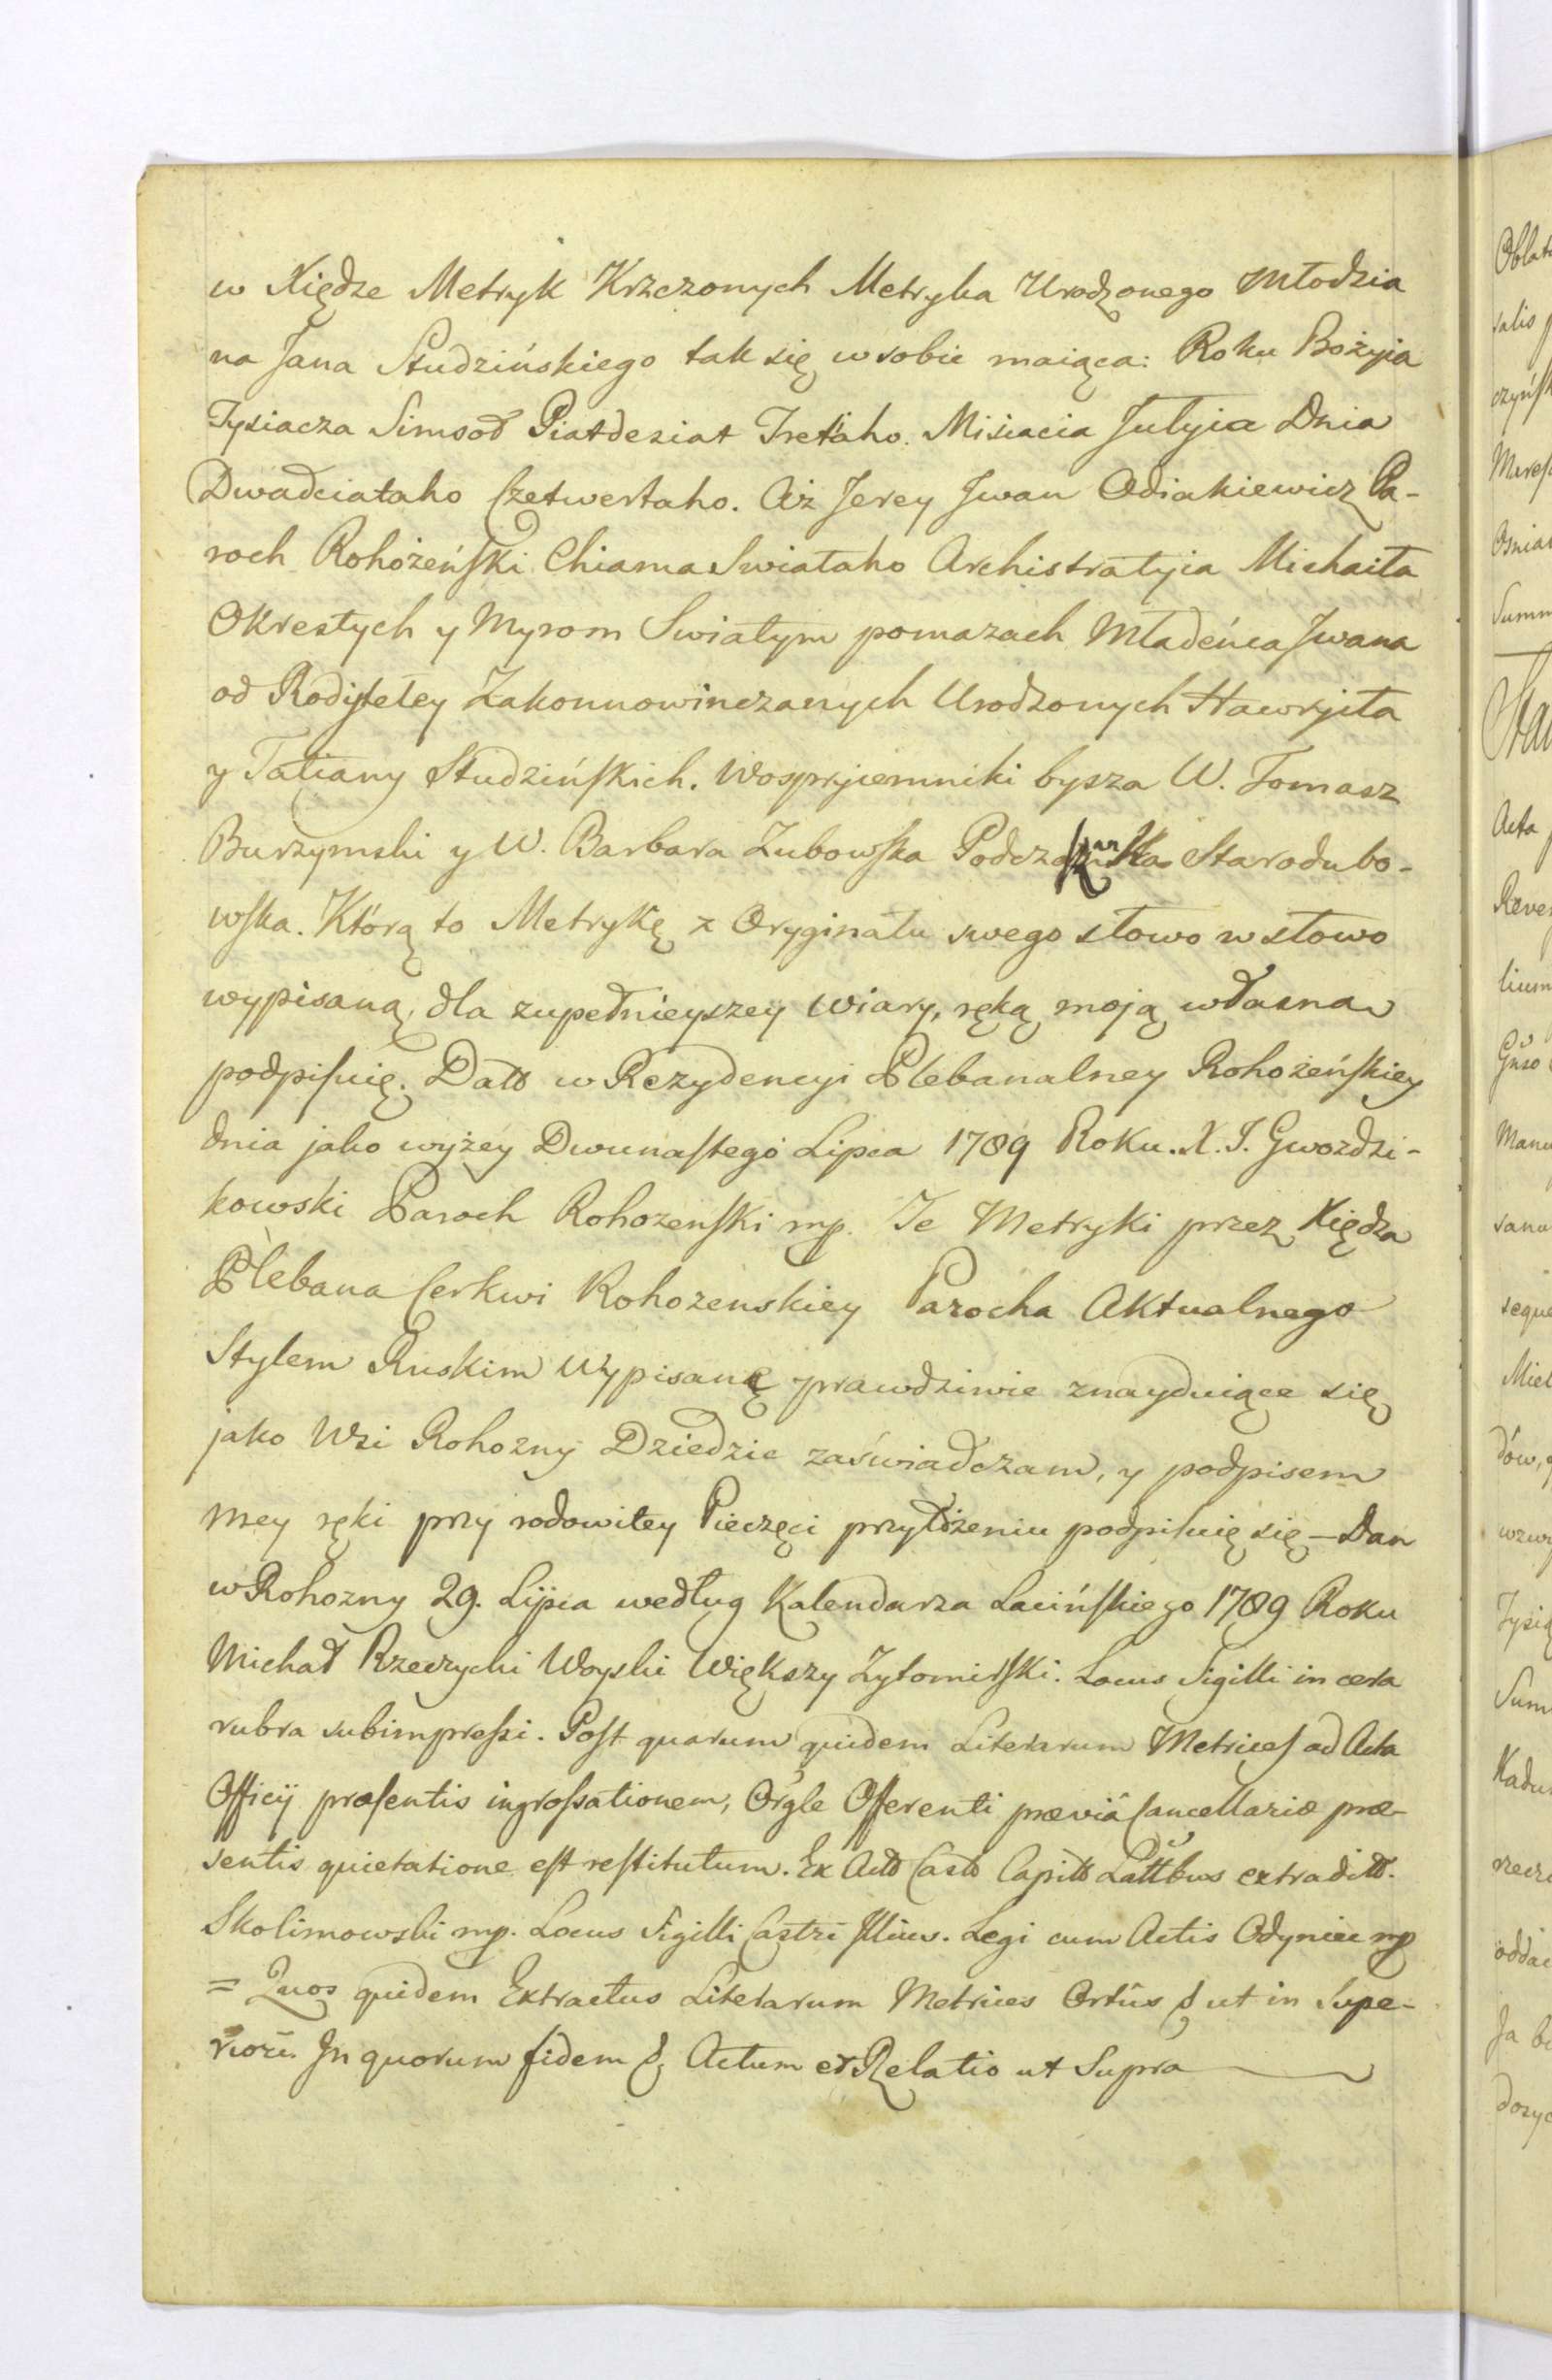 w Xiędze Metryk Krzczonych Metryka Urodzonego Młodzia
na Jana Studzińskiego tak się w sobie maiąca: Roku Bożyia
Tysiacza Simsoł Piatdeziat Tretaho. Misiacia Julyia Dnia
Dwadciataho Czetwertaho. Aż Jerey Jwan Odiakiewicz Pa-
roch Rohożeński Chiama Swiataho Archistratyia Michaiła
Okrestych y Myrom Swiatym pomazach Mładeńca Jwana
od Rodytełey Zakonnowinczanych Urodzonych Hawryiła
y Tatiany Studzińskich. Wospryiemniki bysza W. Tomasz
Burzymski y W. Barbara Zubowska Starodubo-
wska. Którą to Metrykę z Oryginału swego słowo w słowo
wypisaną, dla zupełnieyszey wiary, ręką moją własna
podpisuię. Datt w Rezydencyi Plebanalney Rohożeńskiey
dnia jako wyżey Dwunastego Lipca 1789 Roku. X. J. Gwozdzi-
kowski Paroch Rohozenski mp. Te Metryki przez Xiędza
Plebana Cerkwi Rohozenskiey Parocha Aktualnego
Stylem Ruskim Wypisanę prawdziwie znayduiące się
jako Wsi Rohozny Dziedzic zaświadczam, y podpisem
mey ręki przy rodowitey Pieczęci przyłożeniu podpisuię się – Dan
w Rohozny 29. Lipca według Kalendarza Łacińskiego 1789 Roku
Michał Rzeczycki Woyski Większy Zytomirski. Locus Sigilli in cera
rubra subimpressi. Post quarum quidem Literarum Metrices ad Acta
Officij præsentis ingrossationem, Orgle Offerenti prævia Cancellariæ præ-
sentis quietatione est restitutum. Ex Actt Castt Capitt extraditt.
Skolimowski mp. Locus Sigilli Castri . Legi cum Actis Odyniec mp
= Quos quidem Extractus Literarum Metrices Ortus & ut in Supe-
riori. Jn quorum fidem & Actum et Relatio ut Supra
Oblat
salis
czyńsk
Osnia
Summ
Acta
Rever
lium
Manu
sana
seque
Miel
dów,
wzwy
Tysią
Sum
Kadu
rzecz
oddac
Ja b
dożyc